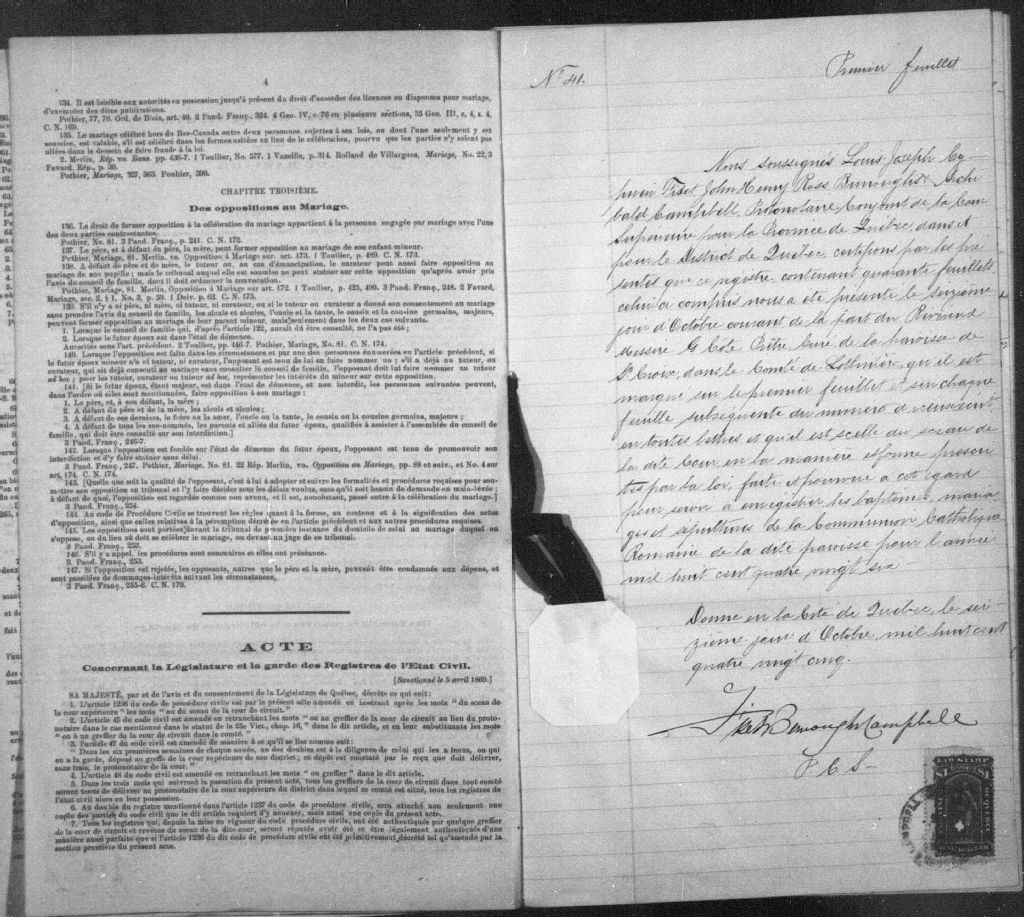 4
134. Il est loisible aux autorités en possession jusqu'à présent du droit d'accorder des licences ou dispenses pour mariage,
d'exempter des dites publications.
Pothier, 77, 78. Ord. de Blois, art. 40. 2 Pand. Franç., 324. 4 Geo. IV, c. 76 en plusieurs sections, 35 Geo. III, c, 4, s. 4,
C. N. 169.
135. Le mariage célébré hors du Bas-Canada entre deux personnes sujettes à ses lois, ou dont l'une seulement y est
soumise, est valable, s'il est célébré dans les formes usitées au lieu de le célébration, pourvu que les parties n'y soient pas
allées dans le dessein de faire fraude à la loi.
2. Merlin, Rép. vo. Bans. pp. 436-7. 1 Toullier, No. 577. 1 Vazeille, p. 314. Rolland de Villargues, Mariage, No. 22, 3
Favard, Rép., p. 39.
Pothier, Mariage, 327, 363. Pothier, 390.
CHAPITRE TROISIÈME.
Des oppositions au Mariage.
136. Le droit de former opposition à la célébration du mariage appartient à la personne engagée par mariage avec l'une
des deux parties contractantes.
Pothier, No. 81. 3 Pand. Franç., p. 241. C. N. 172.
137. Le père, et à défaut du père, la mère, peut former opposition au mariage de son enfant mineur.
Pothier, Mariage, 81. Merlin. vo. Opposition à Mariage sur. art. 173. 1 Toullier, p. 489. C. N. 173.
138. A défaut de père et de mère, le tuteur ou, au cas d'émancipation, le curateur peut aussi faire opposition au
mariage de son pupille; mais le tribunal auquel elle est soumise ne peut statuer sur cette opposition qu'après avoir pris
l'avis du conseil de famille, dont il doit ordonner la convocation.
Pothier, Mariage, 81. Merlin, Opposition à Mariage sur art. 172. 1 Toullier, p. 425, 490. 3 Pand. Franç., 248. 2 Favard,
Mariage, sec. 2, § 1, No. 3, p. 59. 1 Delv. p. 62. C. N. 175.
139. S'il n'y a ni père, ni mère, ni tuteur, ni curateur, ou si le tuteur ou curateur a donné son consentement au mariage
sans prendre l'avis du conseil de famille, les aïeuls et aïeules, l'oncle et la tante, le cousin et la cousine germains, majeurs,
peuvent former opposition au mariage de leur parent mineur, mais seulement dans les deux cas suivants.
1. Lorsque le conseil de famille qui, d'après l'article 122, aurait dû être consulté, ne l'a pas été;
2. Lorsque le futur époux est dans l'état de démence.
Autorités sous l'art. précédent. 2 Toullier, pp. 446-7. Pothier, Mariage, No. 81. C. N. 174.
140. Lorsque l'opposition est faite dans les circonstances et par une des personnes énumérées en l'article précédent, si
le futur époux mineur n'a ni tuteur, ni curateur, l'opposant est tenu de lui en faire nommer un; s'il a déjà un tuteur, ou
curateur, qui ait déjà consenti au mariage sans consulter le conseil de famille, l'opposant doit lui faire nommer un tuteur
ad hoc; pour les tuteur, curateur ou tuteur ad hoc, représenter les intérêts du mineur sur cette opposition.
141. [Si le futur époux, étant majeur, est dans l'état de démence, et non interdit, les personnes suivantes peuvent,
dans l'ordre où elles sont mentionnées, faire opposition à son mariage:
1. Le père, et, à son défaut, la mère;
2. A défaut du père et de la mère, les aïeuls et aïeules;
3. A défaut de ces derniers, le frère ou la sœur, l'oncle ou la tante, le cousin ou la cousine germains, majeurs;
4. A défaut de tous les sus-nommés, les parents et alliés du futur époux, qualifiés à assister à l'assemblée du conseil de
famille, qui doit être consulté sur son interdiction.]
3 Pand. Franç., 246-7.
142. Lorsque l'opposition est fondée sur l'état de démence du futur époux, l'opposant est tenu de promouvoir son
interdiction et d'y faire statuer sans délai.
3 Pand. Franç., 247. Pothier, Mariage. No. 81. 22 Rép. Merlin, vo. Opposition au Mariage, pp. 88 et suiv., et No. 4 sur
art, 174. C. N. 174.
143. [Quelle que soit la qualité de l'opposant, c'est à lui à adopter et suivre les formalités et procédures requises pour sou-
mettre son opposition au tribunal et l'y faire décider sous les délais voulus, sans qu'il soit besoin de demande en main-levée;
à défaut de quoi, l'opposition est regardée comme non avenu, et il est, nonobstant, passé outre à la célébration du mariage.]
3 Pand. Franç., 254.
144. Au code de Procédure Civile se trouvent les règles quant à la forme, au contenu et à la signification des actes
d'opposition, ainsi que celles relatives à la péremption décrétée en l'article précédent et aux autres procédures requises.
145. Les oppositions sont portées devant le tribunal de première instance du domicile de celui au mariage duquel on
s'oppose, ou du lieu où doit se célébrer le mariage, ou devant un juge de ce tribunal.
3 Pand. Franç., 253.
146. S'il y a appel, les procédures sont sommaires et elles ont préséance.
3. Pand. Franç., 253.
147. Si l'opposition est rejetée, les opposants, autres que le père et la mère, peuvent être condamnés aux dépens, et
sont passibles de dommages-intérêts suivant les circonstances,
3 Pand. Franç., 255-6. C. N. 179.
ACTE
Concernant la Législature et la garde des Registres de l'Etat Civil.
[Sanctionné le 5 avril 1869.]
SA MAJESTÉ, par et de l'avis et du consentement de la Législature de Québec, décrète ce qui suit:
1. L'article 1236 du code de procédure civile est par le présent acte amendé en insérant après les mots "du sceau de
la cour supérieure" les mots "ou du sceau de la cour de circuit."
2. L'article 45 du code civil est amendé en retranchant les mots "ou au greffier de la cour de circuit au lieu du proto-
notaire dans le cas mentionné dans le statut de la 25e Vict., chap. 16," dans le dit article, et en leur substituants les mots
"ou à un greffier de la cour de circuit dans le comté."
3. l'article 47 du code civil est amendé de manière à ce qu'il se lise comme suit:
"Dans les six premières semaines de chaque année, un des doubles est à la diligence de celui qui les a tenus, ou qui
en a la garde, déposé au greffe de la cour supérieure de son district; ce dépôt est constaté par le reçu que doit délivrer,
sans frais, le protonotaire de la cour."
4. L'article 48 du code civil est amendé en retranchant les mots "ou greffier" dans le dit article.
5. Dans les trois mois qui suivront la passation du présent acte, tous les greffiers de la cour de circuit dans tout comté
seront tenus de délivrer au protonotaire de la cour supérieure du district dans lequel ce comté est situé, tous les registres de
l'état civil alors en leur possession.
6. Au double du registre mentionné dans l'article 1237 du code de procédure civile, sera attaché non seulement une
copie des parties du code civil que le dit article requiert d'y annexer, mais aussi une copie du présent acte.
7. Tous les registres qui, depuis la mise en vigueur du code procédure civile, ont été authentiqués par quelque greffier
de la cour de circuit et revêtus du sceau de la dite cour, seront réputés avoir été et être légalement authentiqués d'une
manière aussi parfaite que si l'article 1236 du dit code de procédure civile eut été primitivement décrété tel qu'amendé par la
section première du présent acte.
No 41. Premier feuillet
Nous soussignés Louis Joseph Cy
prien Fiset, John Henry Ross Burroughs & Archi
bald Campbell, Protonotaire Conjoint de la Cour
Supérieure pour la Province de Québec, dans et
pour le District de Québec, certifions par les pré
sentes que ce registre contenant quarante feuillets
celui-ci compris nous a été présenté le seizième
jour d'Octobre courant de la part du Révérend
Messire G Coté Prêtre Curé de la paroisse de
Ste Croix, dans le Comté de Lotbinière, qu'il est
marqué sur le premier feuillet et sur chaque
feuille subséquente du numéro d'iceux écrit
en toutes lettres et qu'il est scellé du sceau de
la dite Cour, en la manière et forme prescri
tes par la loi, faite et pourvue à cet égard
pour servir à enregistrer les baptêmes, maria
ges et sépultures de la Communion Catholique
Romaine de la dite paroisse pour l'année
mil huit cent quatre vingt six
Donné en la Cité de Québec, le sei-
zième jour d'Octobre, mil huit cent
quatre vingt cinq.
Fiset Burroughs Campbell
P. C. S.
LAW STAMP